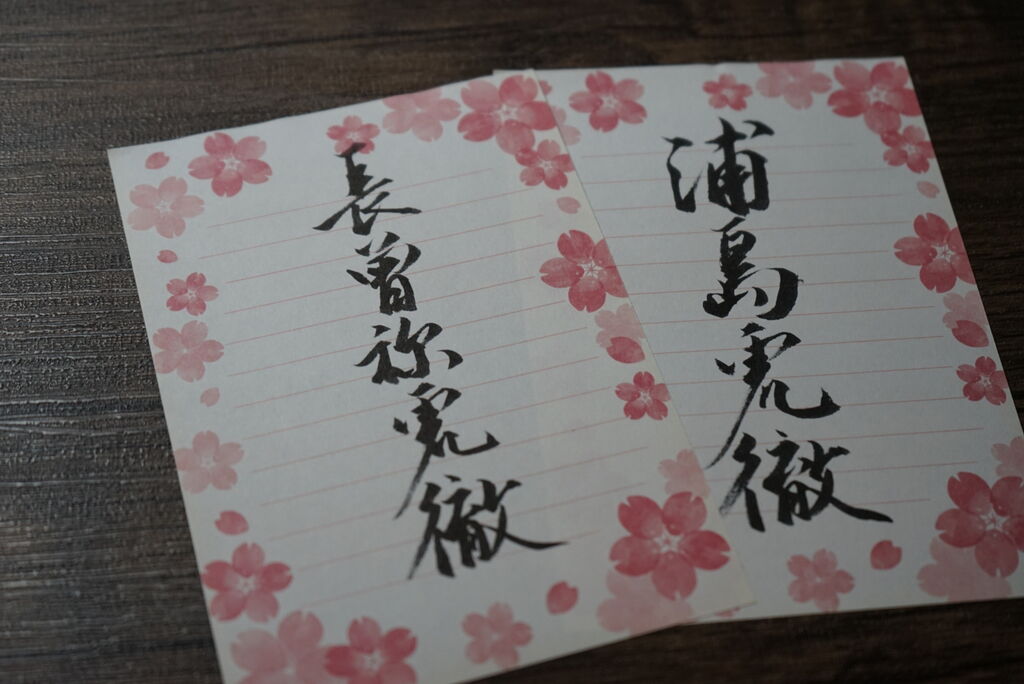 浦島虎徹
長曽祢虎徹